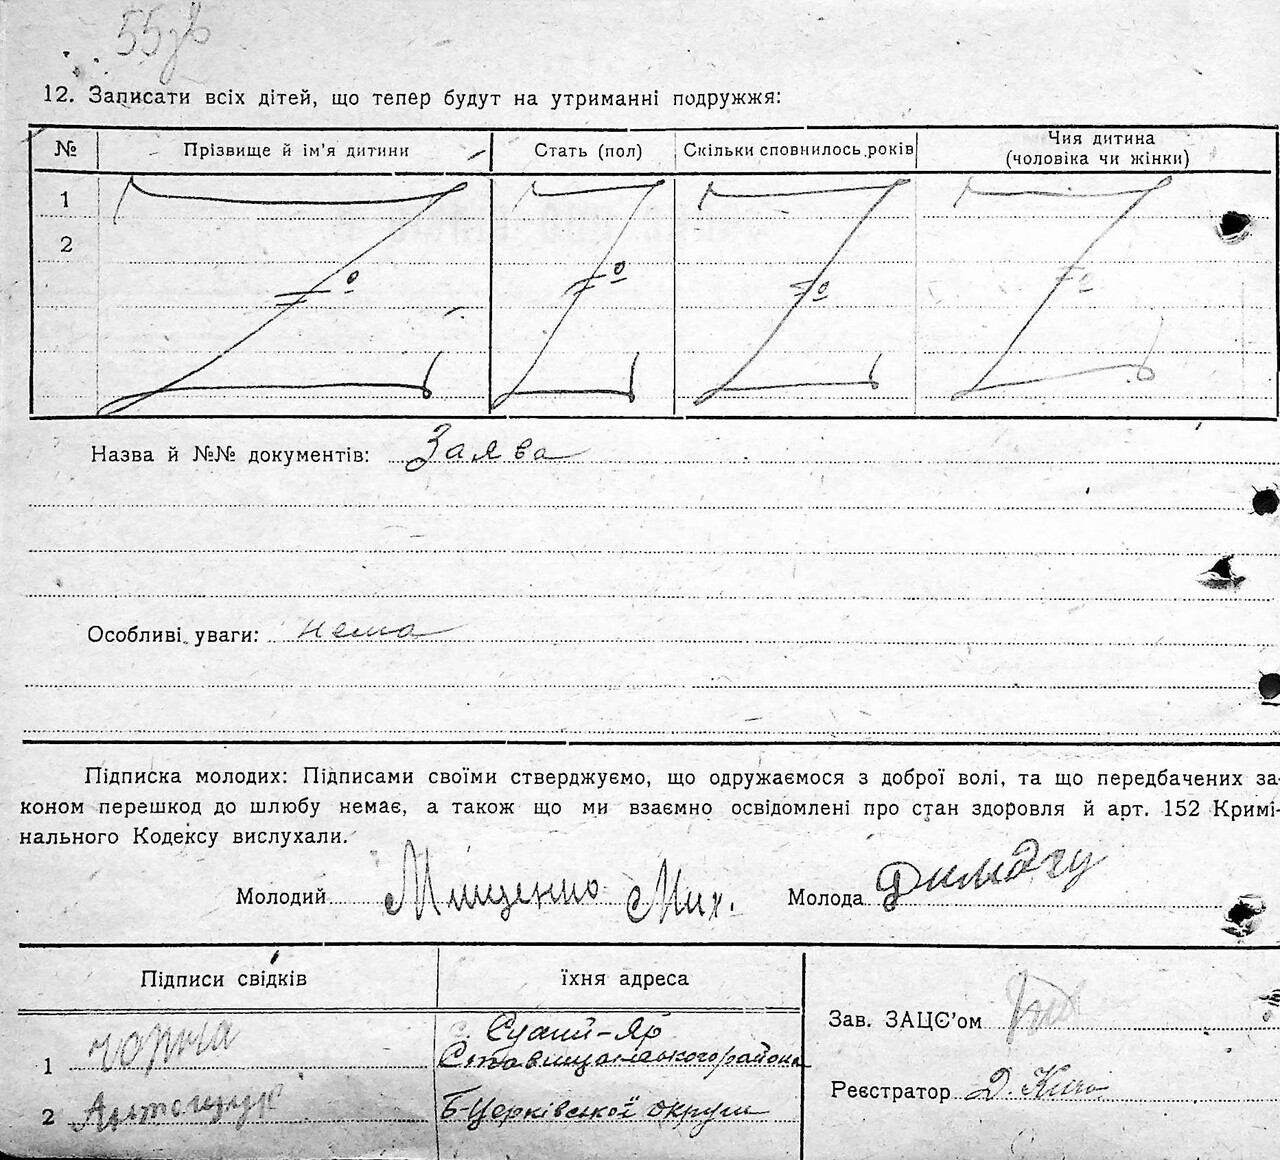 55зв
12. Записати всіх дітей, що тепер будут на утриманні подружжя:
№ Прізвище й ім'я дитини Стать (пол) Скільки сповнилось років Чия дитина
(чоловіка чи жінки)
1
2
Назва й №№ документів: Заява
Особливі уваги: нема
Підписка молодих: Підписами своїми стверджуємо, що одружаємося з доброї волі, та що передбачених за-
коном перешкод до шлюбу немає, а також що ми взаємно освідомлені про стан здоровля й арт. 152 Кримі-
нального Кодексу вислухали.
Молодий Міщенко Мих. Молода
Підписи свідків їхня адреса
Зав. ЗАЦЄ'ом
1 чорна С. Сухий-Яр
Ставищанського района
Реєстратор Д.
2 Б-Церківської округи